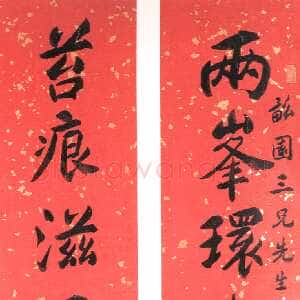 詒園三兄先生
兩峯環
苔痕滋